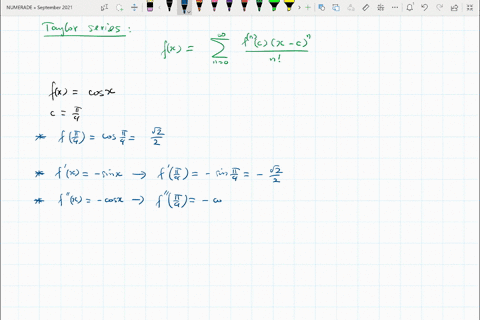 NUMERADE • September 2021
Taylor series:
f(x) = ∑_{n=0}^{∞} f^{(n)}(c) (x - c)^n / n!
f(x) = cosx
c = π/4
* f(π/4) = cos π/4 = √2/2
* f'(x) = -sinx → f'(π/4) = - sin π/4 = - √2/2
* f''(x) = -cosx → f''(π/4) = - co